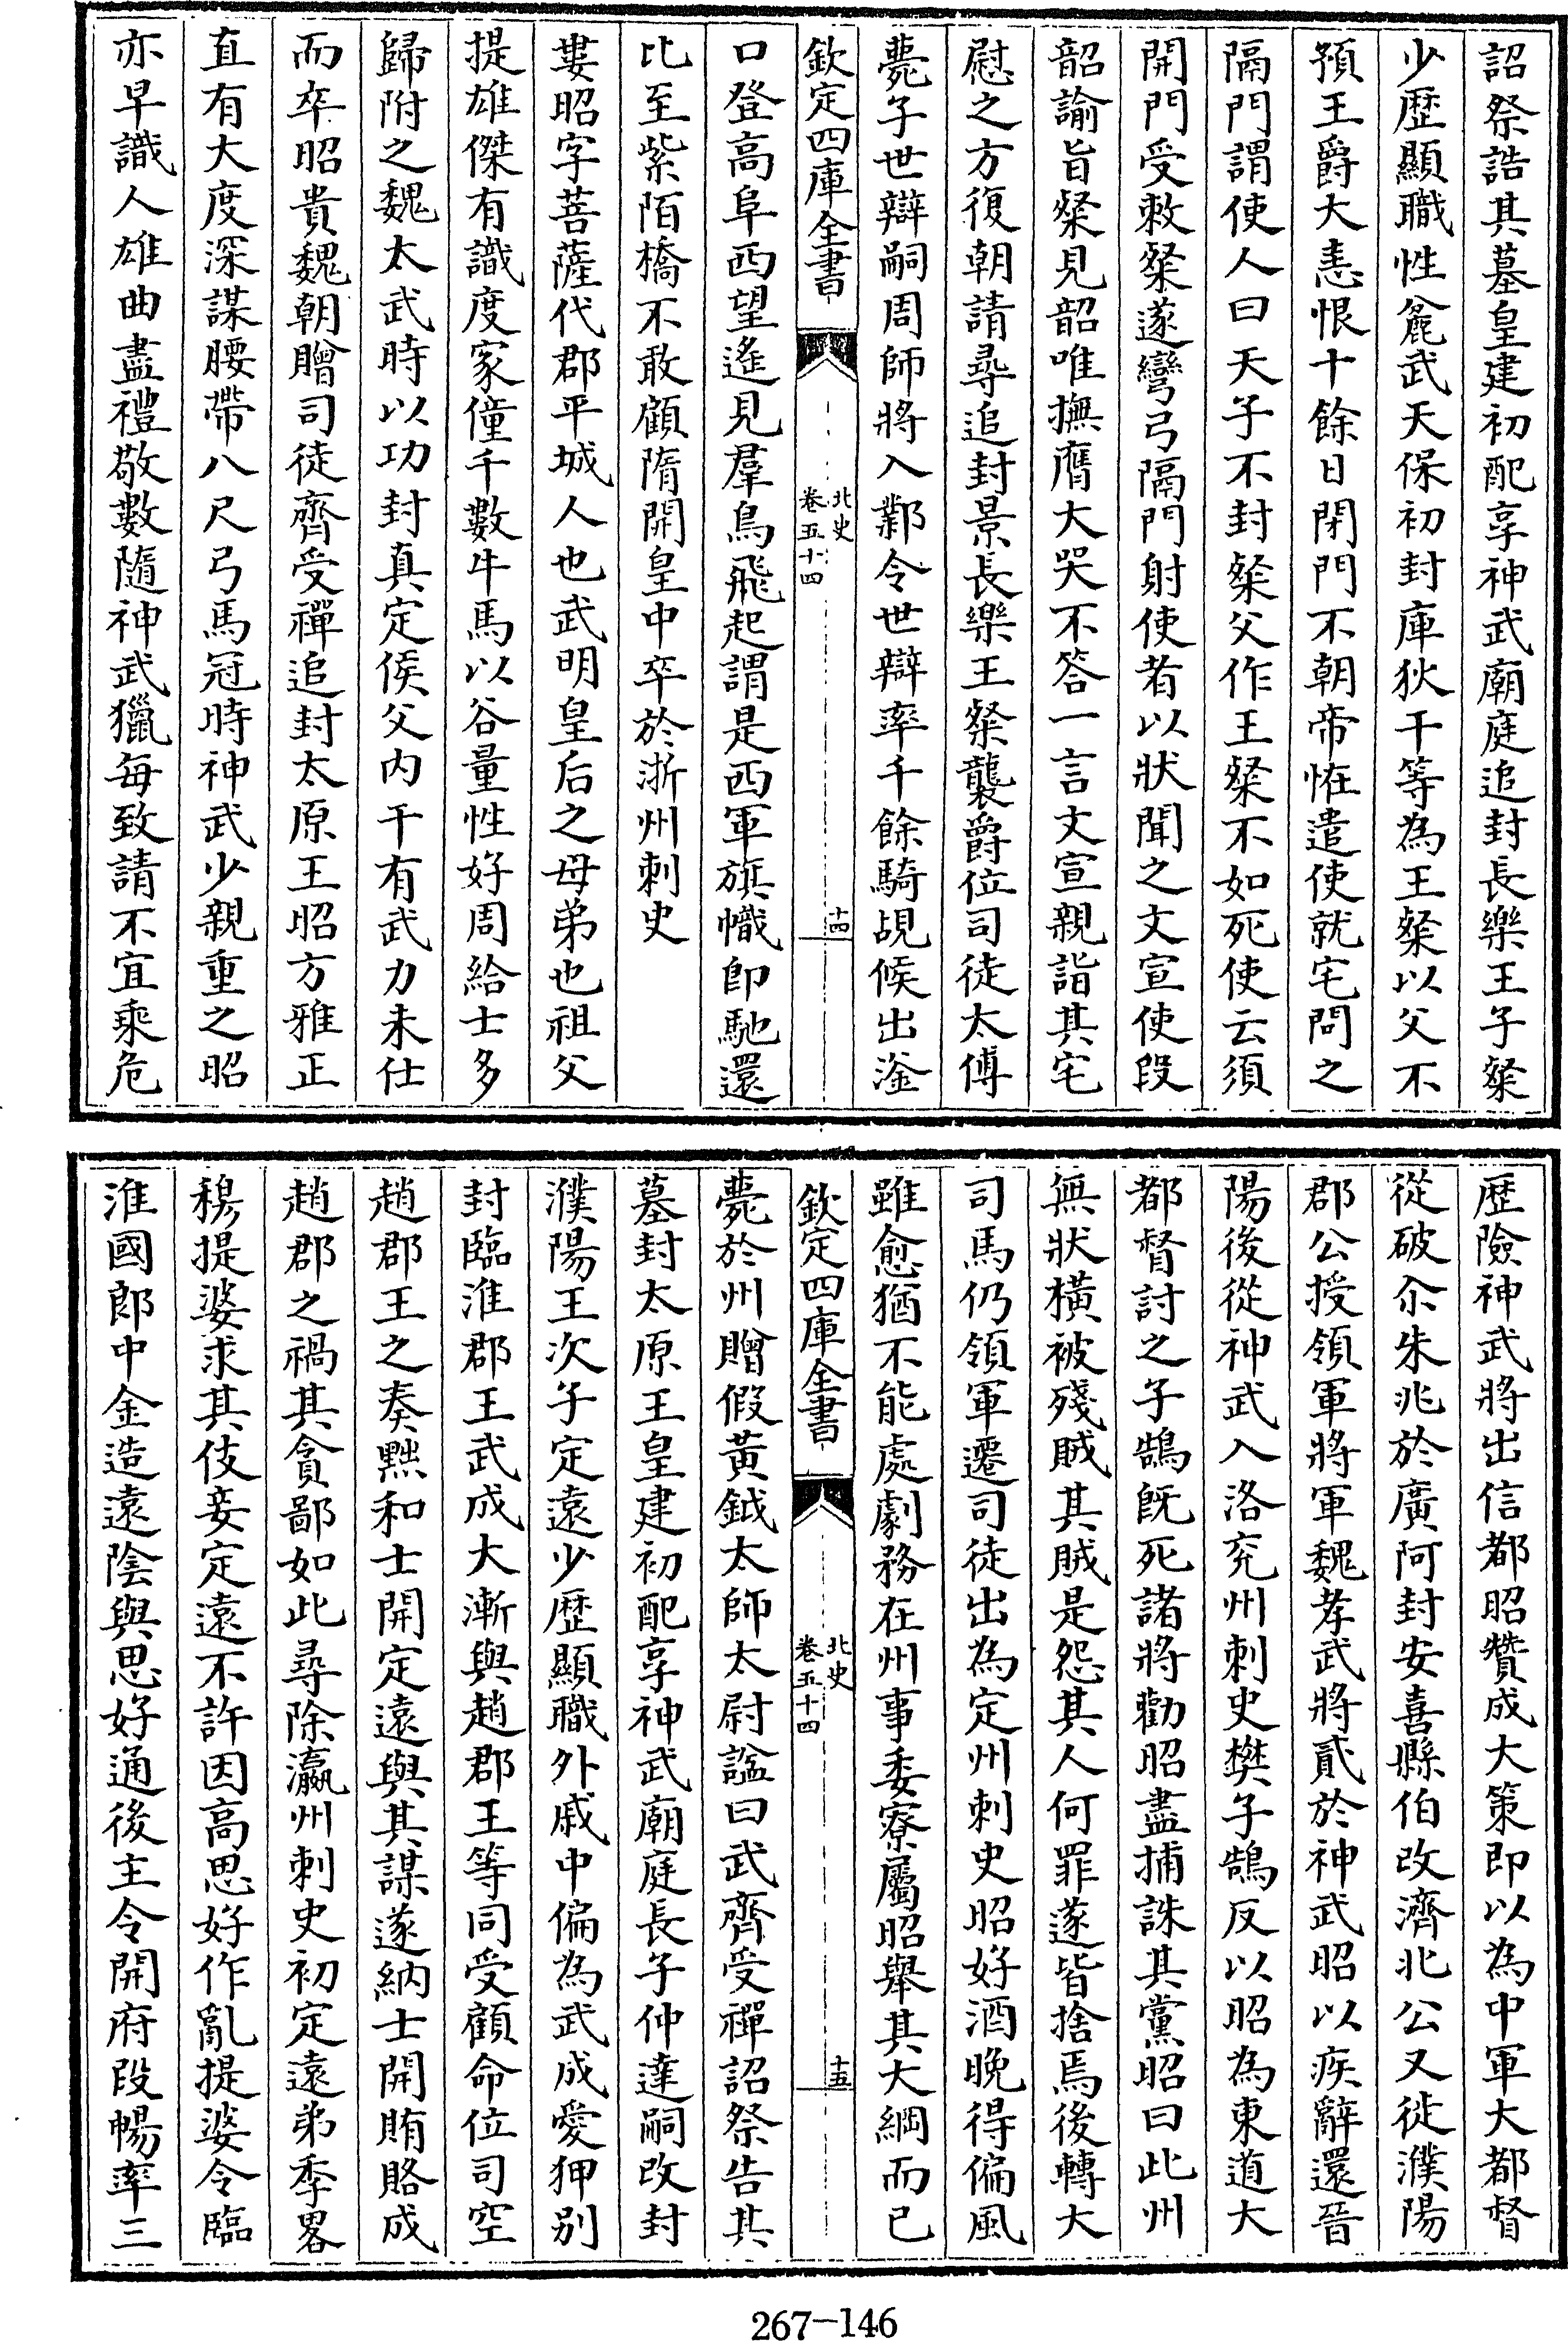 詔祭誥其墓皇建初配享神武廟庭追封長樂王子粲
少歷顯職性麄武天保初封庫狄干等為王粲以父不
預王爵大恚恨十餘日閉門不朝帝恠遣使就宅問之
隔門謂使人曰天子不封粲父作王粲不如死使云須
開門受敕粲遂彎弓隔門射使者以狀聞之文宣使段
韶諭旨粲見韶唯撫膺大哭不答一言文宣親詣其宅
慰之方復朝請尋追封景長樂王粲襲爵位司徒太傅
薨子世辯嗣周師將入鄴令世辯率千餘騎覘候出滏
欽定四庫全書
北史
卷五十四
十四
口登高阜西望遙見羣鳥飛起謂是西軍旗幟即馳還
比至紫陌橋不敢顧隋開皇中卒於浙州刺史
婁昭字菩薩代郡平城人也武明皇后之母弟也祖父
提雄傑有識度家僮千數牛馬以谷量性好周給士多
歸附之魏太武時以功封真定侯父内干有武力未仕
而卒昭貴魏朝贈司徒齊受禪追封太原王昭方雅正
直有大度深謀腰帶八尺弓馬冠時神武少親重之昭
亦早識人雄曲盡禮敬數隨神武獵每致請不宜乘危
歷險神武將出信都昭贊成大策即以為中軍大都督
從破尒朱兆於廣阿封安喜縣伯改濟北公又徙濮陽
郡公授領軍將軍魏孝武將貳於神武昭以疾辭還晉
陽後從神武入洛兖州刺史樊子鵠反以昭為東道大
都督討之子鵠旣死諸將勸昭盡捕誅其黨昭曰此州
無狀橫被殘賊其賊是怨其人何罪遂皆捨焉後轉大
司馬仍領軍遷司徒出為定州刺史昭好酒晚得偏風
雖愈猶不能處劇務在州事委寮屬昭舉其大綱而已
欽定四庫全書
北史
卷五十四
十五
薨於州贈假黃鉞太師太尉諡曰武齊受禪詔祭告其
墓封太原王皇建初配享神武廟庭長子仲達嗣改封
濮陽王次子定遠少歷顯職外戚中偏為武成愛狎別
封臨淮郡王武成大漸與趙郡王等同受顧命位司空
趙郡王之奏黜和士開定遠與其謀遂納士開賄賂成
趙郡之禍其貪鄙如此尋除瀛州刺史初定遠弟季畧
穆提婆求其伎妾定遠不許因高思好作亂提婆令臨
淮國郎中金造遠陰與思好通後主令開府段暢率三
267-146